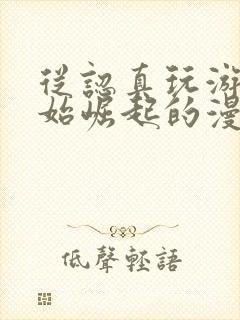 從認真玩游
始崛起的漫
低聲輕語